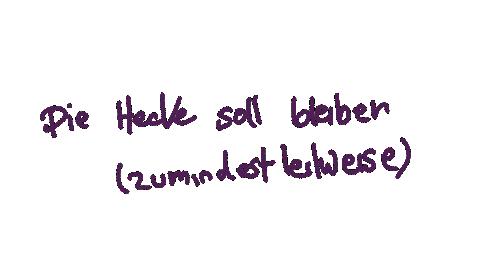 Die Hecke soll bleiben
(zumindest teilweise)